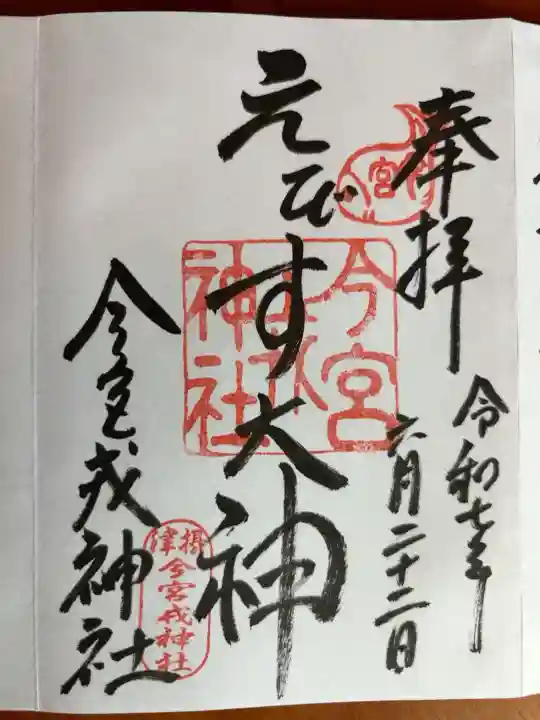 奉拝
令和七年
六月二十二日
宮
えびす大神
今宮
戎
神社
今宮戎神社
摂津
今宮戎神社